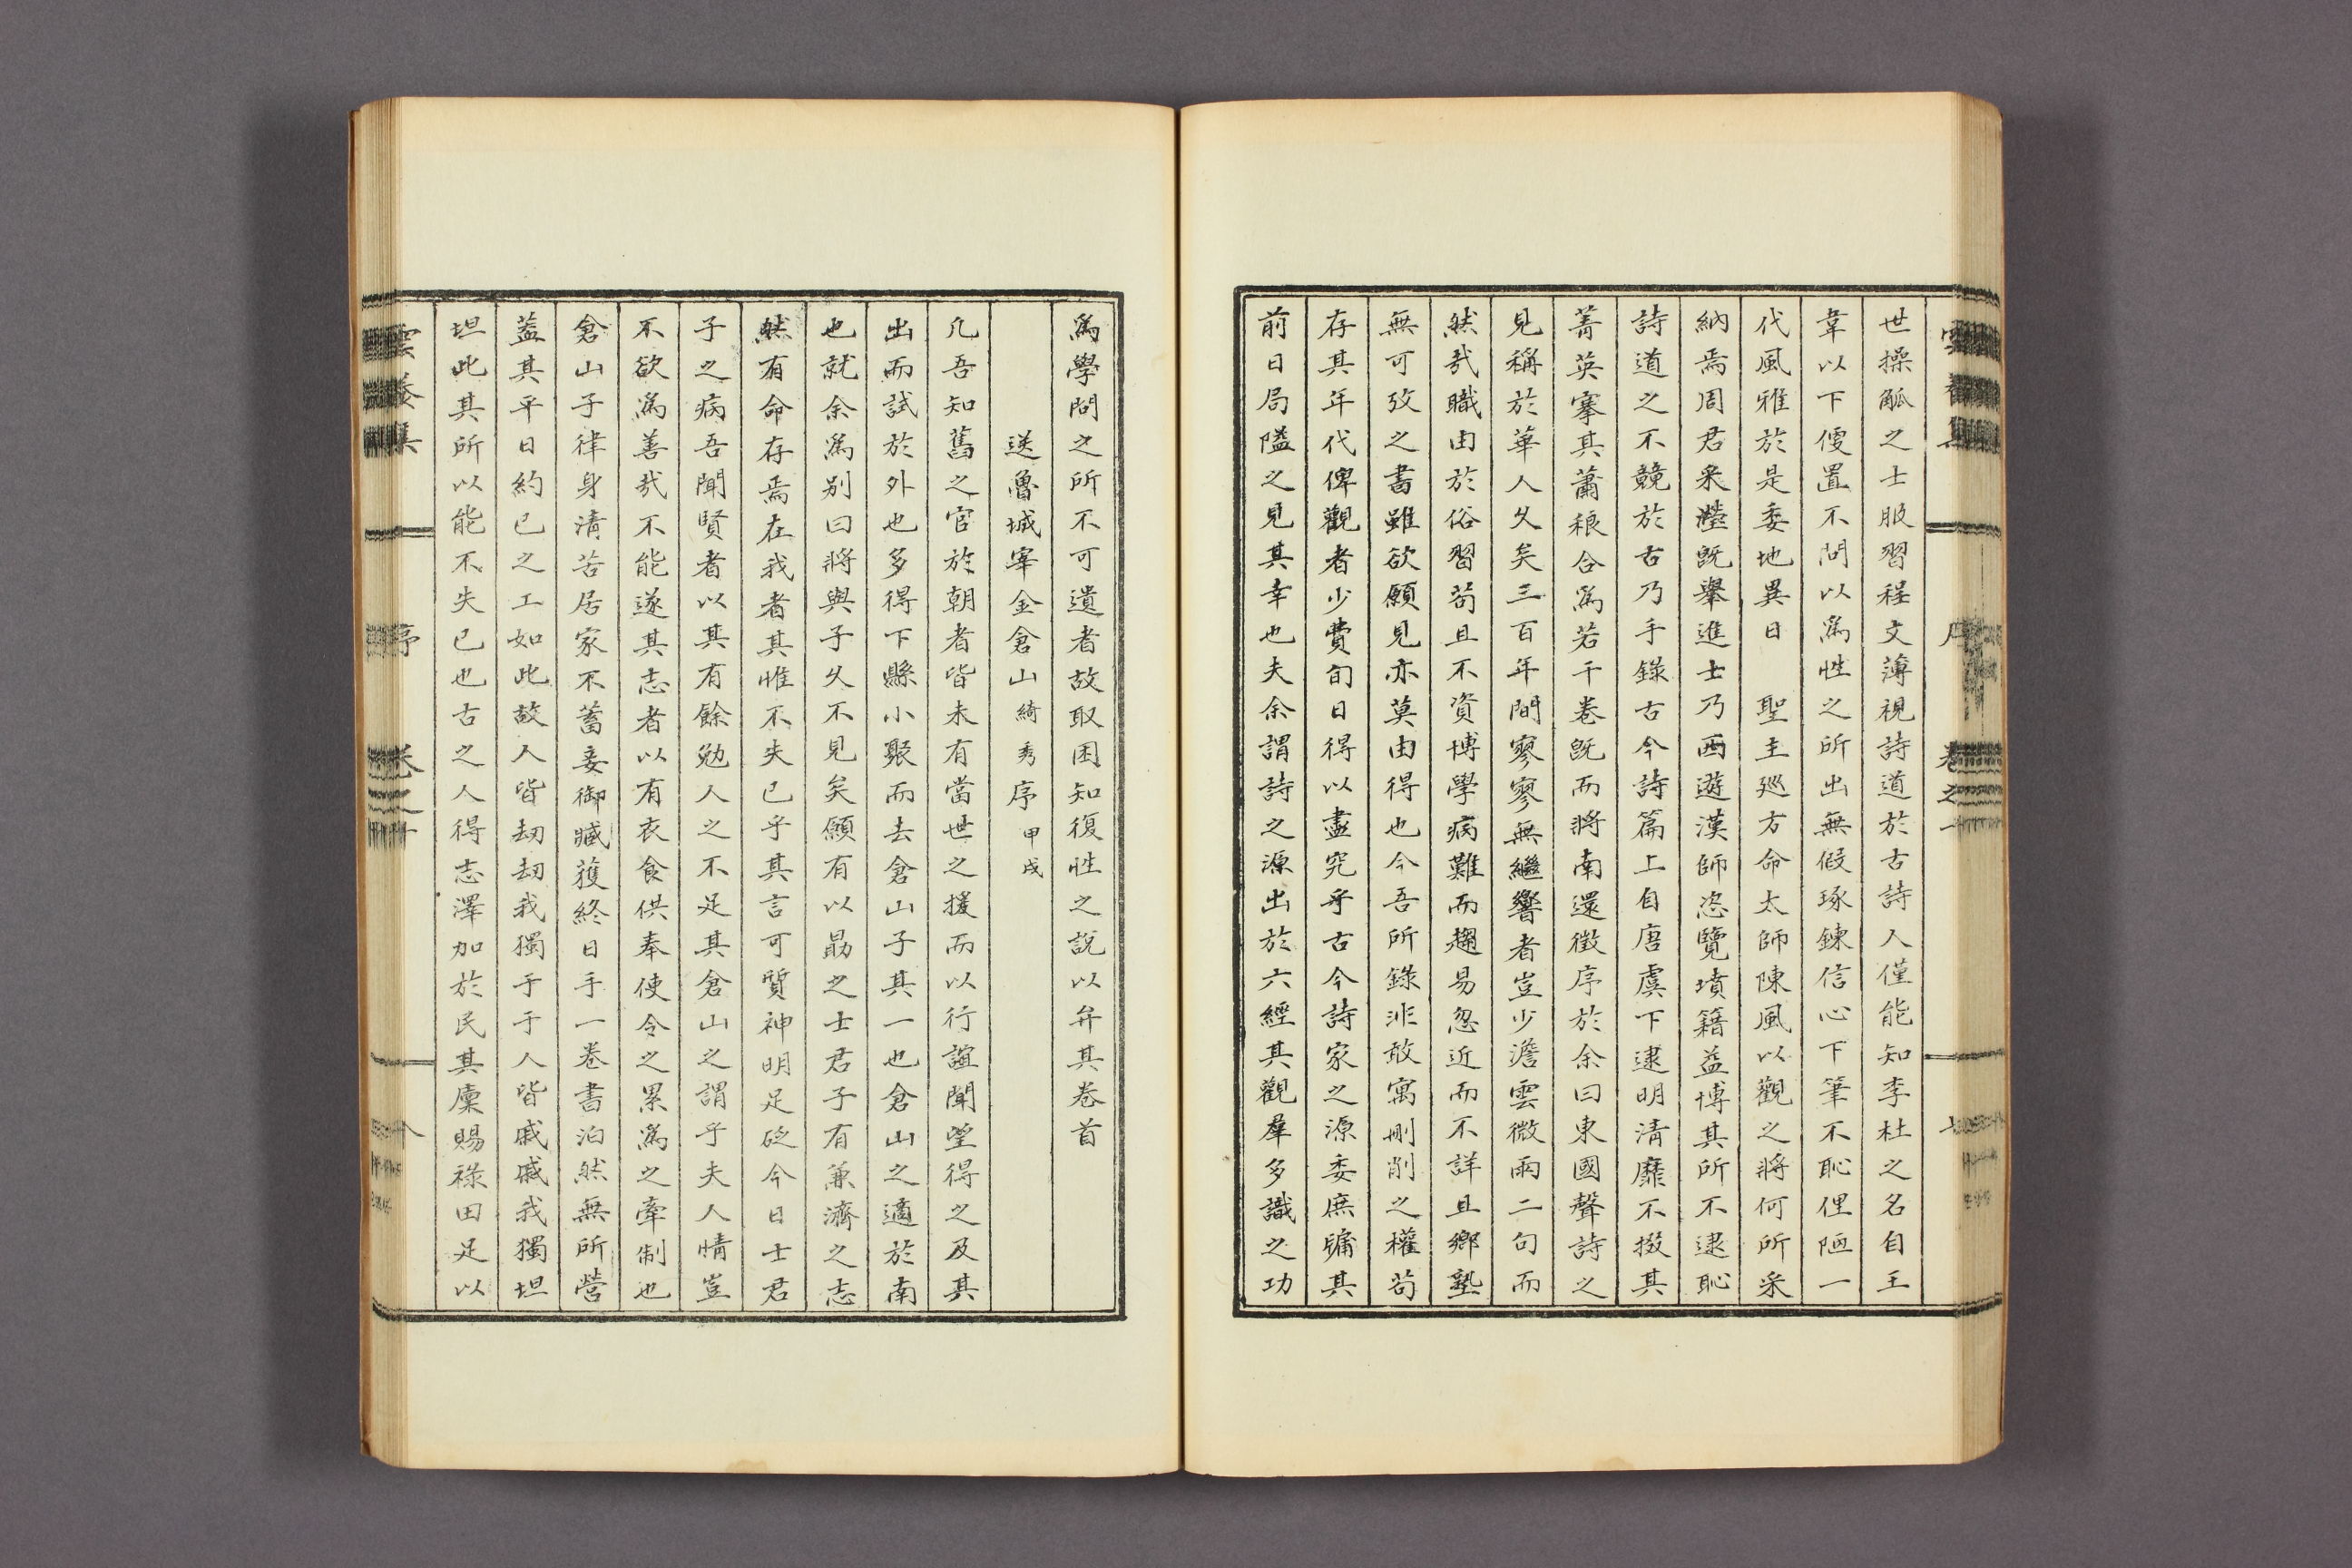 世操觚之士服習程文薄視詩道於古詩人僅能知李杜之名自王
韋以下便置不問以爲性之所出無假琢鍊信心下筆不恥俚陋一
代風雅於是委地異日 聖主廵方命太師陳風以觀之將何所采
納焉周君采瀅旣擧進士乃西遊漢師恣覽墳籍益博其所不逮恥
詩道之不競於古乃手錄古今詩篇上自唐虞下逮明淸靡不掇其
菁英搴其蕭稂合爲若干卷旣而將南還徵序於余曰東國聲詩之
見稱於華人久矣三百年間寥寥無繼響者豈少澹雲微雨二句而
然哉職由於俗習苟且不資博學病難而趨易忽近而不詳且鄉塾
無可攷之書雖欲願見亦莫由得也今吾所錄非敢寓刪削之權苟
存其年代俾觀者少費旬日得以盡究乎古今詩家之源委庶牖其
前日局隘之見其幸也夫余謂詩之源出於六經其觀羣多識之功
爲學問之所不可遺者故取困知復性之說以弁其卷首
送魯城宰金倉山 綺秀 序 甲戌
凡吾知舊之官於朝者皆未有當世之援而以行誼聞望得之及其
出而試於外也多得下縣小聚而去倉山子其一也倉山之適於南
也就余爲别曰將與子久不見矣願有以勗之士君子有兼濟之志
然有命存焉在我者其惟不失己乎其言可質神明足砭今日士君
子之病吾聞賢者以其有餘勉人之不足其倉山之謂乎夫人情豈
不欲爲善哉不能遂其志者以有衣食供奉使令之累爲之牽制也
倉山子律身淸苦居家不蓄妾御臧獲終日手一卷書泊然無所營
蓋其平日約己之工如此故人皆刧刧我獨于于人皆戚戚我獨坦
坦此其所以能不失己也古之人得志澤加於民其廩賜祿田足以